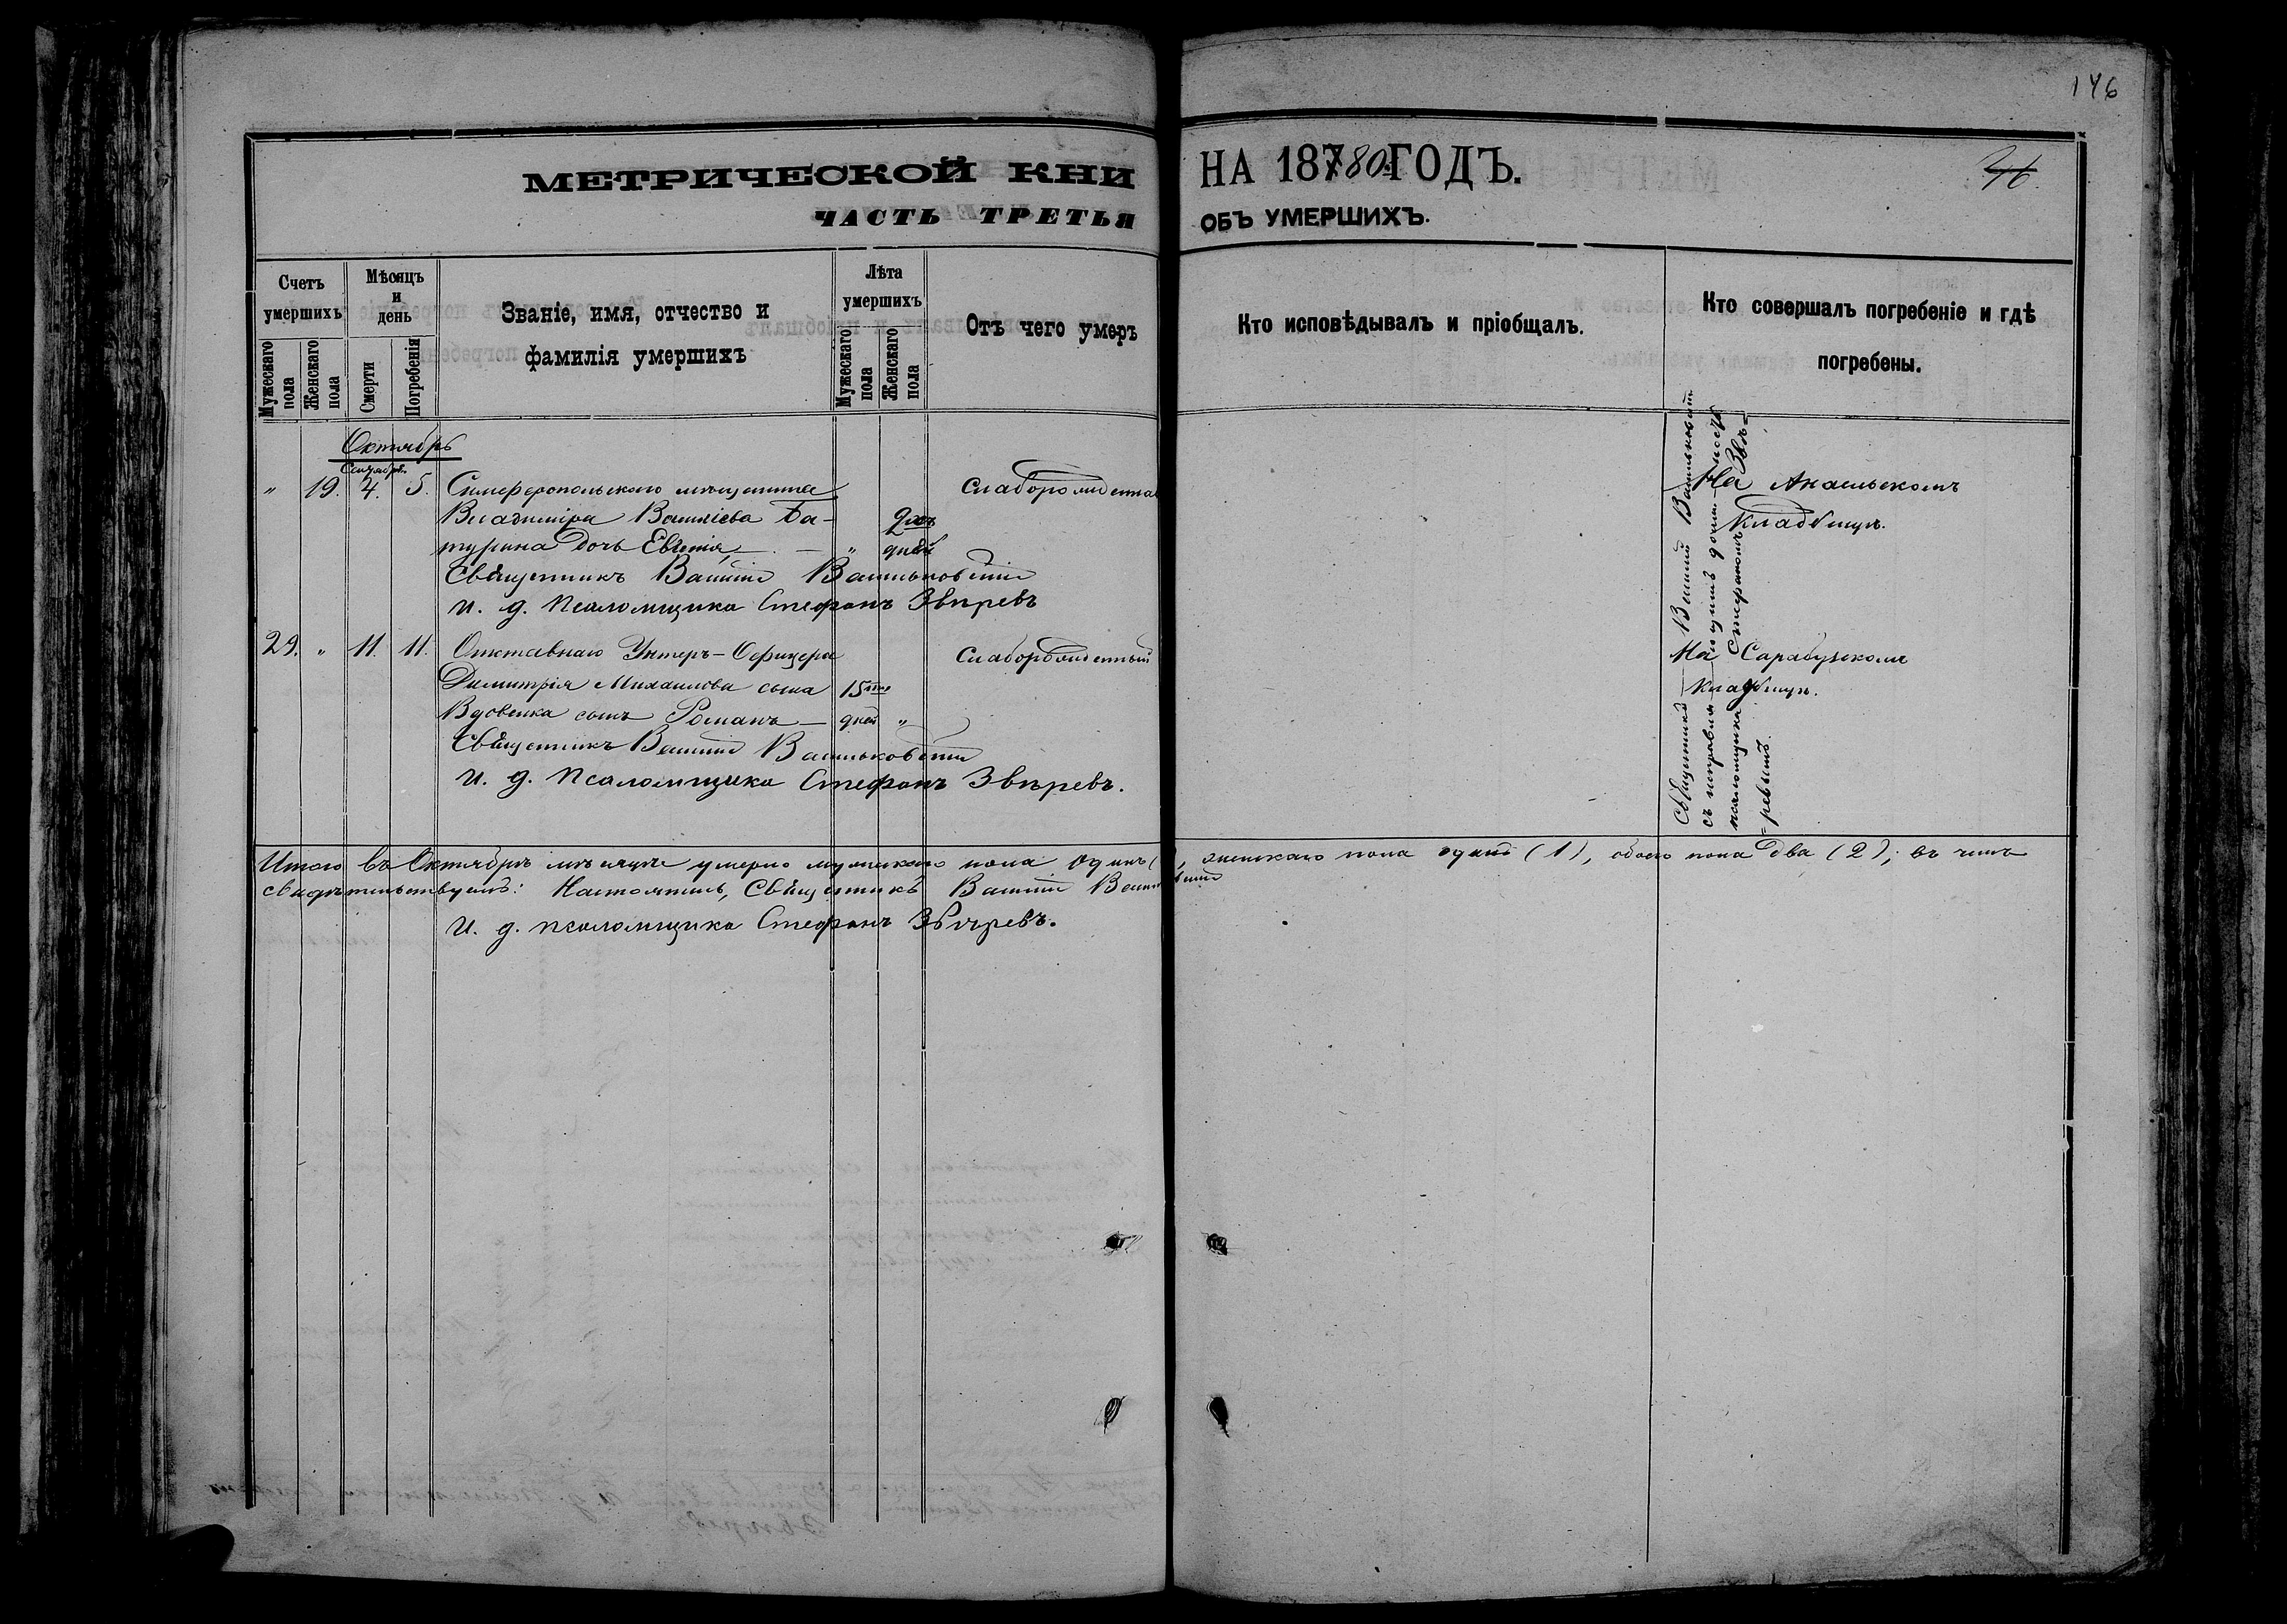 146
МЕТРИЧЕСКОЙ КНИ НА 18780 ГОДЪ.
46.
ЧАСТЬ ТРЕТЬЯ ОБЪ УМЕРШИХЪ.
Счетъ умершихъ
Мужескаго пола
Женскаго пола
Мѣсяцъ и день
Смерти
Погребенія
Званіе, имя, отчество и
фамилія умершихъ
Лѣта умершихъ
Мужескаго пола
Женскаго пола
Отъ чего умеръ
Кто исповѣдывалъ и пріобщалъ.
Кто совершалъ погребеніе и гдѣ
погребены.
Октябрь
Сентября.
" 19. 4. 5. Симферопольскаго мѣщанина Слаборожденна
Владиміра Василіева Ба-
турина дочь Евгенія — " дней
Священникъ Василій Васильковскій
И. д. Псаломщика Стефанъ Звѣревъ
На Акмельскомъ
кладбищѣ.
29. " 11. 11. Отставнаго Унтеръ-Офицера Слаборожденный
Димитрія Михаилова сына 15
Вдовенка сынъ Романъ — дней "
Священникъ Василій Васильковскій
И. д. Псаломщика Стефанъ Звѣревъ.
На Сарабузскомъ
кладбищѣ.
Священникъ Василій Васильковскій
съ исправляющимъ должность
псаломщика Стефаномъ Звѣ=
=ревымъ.
Итого въ Октябрѣ мѣсяцѣ умерло мужскаго пола одинъ ( , женскаго пола одна (1), обоего пола два (2); въ чемъ
свидѣтельствуемъ: Настоятель, Священникъ Василій
И. д. псаломщика Стефанъ Звѣревъ.